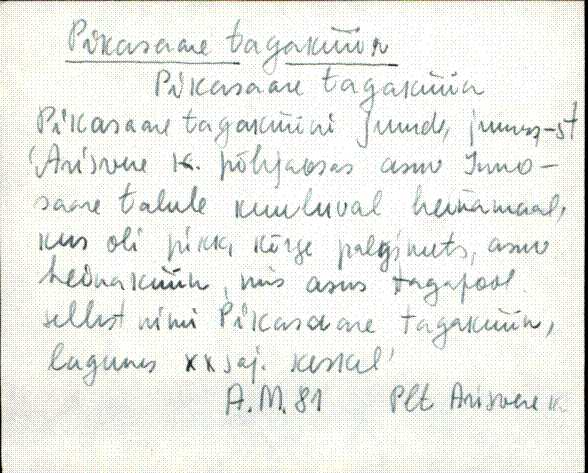 Pikasaare tagaküün
Pikasaare tagaküün
Pikasaare tagaküüni juurde, juures, -st
Arisvere k. põhjaosas asuv Inno-
saare talule kuuluval heinamaal,
kus oli pikk, kõrge palginuts, asuv
heinaküün, mis asus tagapool
sellest nimi Pikasaare tagaküün,
lagunes XX saj. keskel
A.M. 81 Plt Arisvere k.